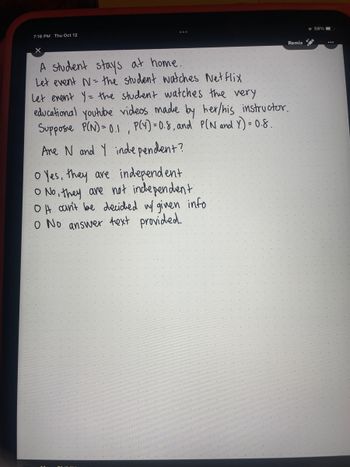 7:16 PM Thu Oct 12
58%
Remix
A student stays at home.
Let event N = the student watches Netflix
Let event Y = the student watches the very
educational youtube videos made by her/his instructor.
Suppose P(N) = 0.1 , P(Y) = 0.8, and P(N and Y) = 0.8.
Are N and Y independent?
O Yes, they are independent
O No, they are not independent
O It can't be decided w/ given info
O No answer text provided.